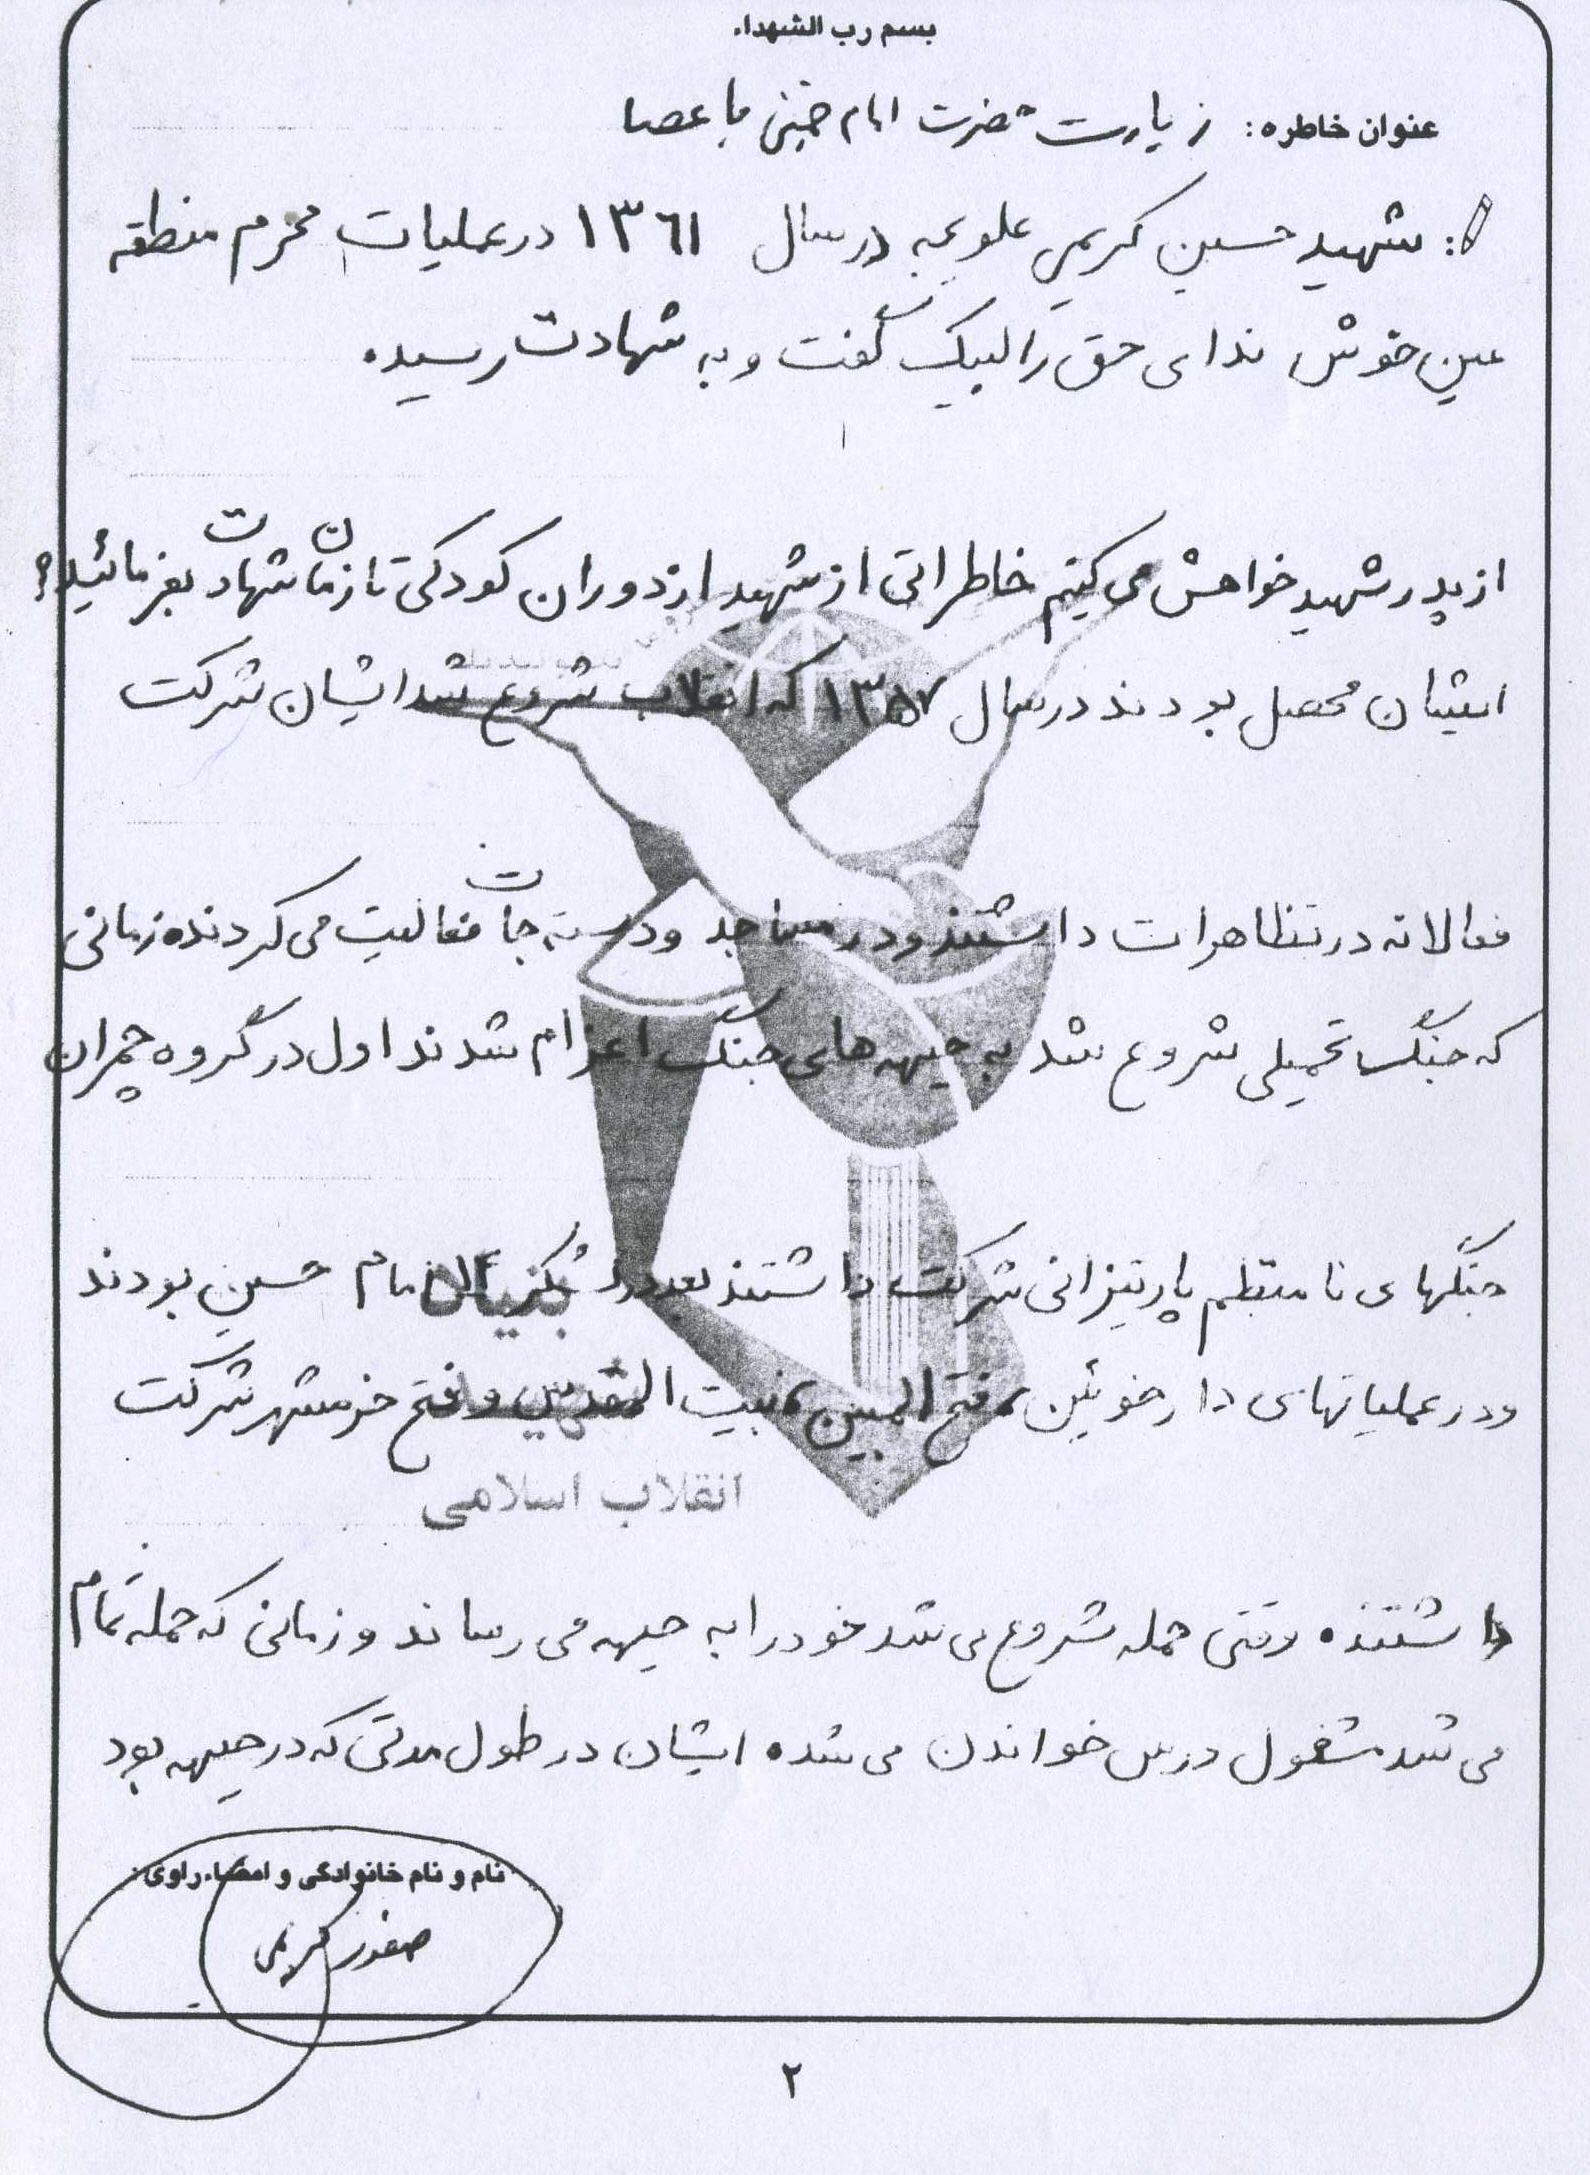 بسم رب الشهداء
عنوان خاطره: زیارت حضرت امام خمینی با عصا
: شهید حسین کریمی علویجه در سال ۱۳۶۱ در عملیات محرم منطقه
عین خوش ندای حق را لبیک گفت و به شهادت رسید.
از پدر شهید خواهش می کنیم خاطراتی از شهید از دوران کودکی تا زمان شهادت بفرمائید؟
ایشان محصل بودند در سال ۱۳۵۷ که انقلاب شروع شد ایشان شرکت
فعالانه در تظاهرات داشتند و در مساجد و دسته جات فعالیت می کردند. زمانی
که جنگ تحمیلی شروع شد به جبهه های جنگ اعزام شدند اول در گروه چمران
جنگهای نامنظم پارتیزانی شرکت داشتند بعد در لشکر ۱۴ امام حسین بودند
بنیاد
و در عملیاتهای دارخوئین، فتح المبین، بیت المقدس و فتح خرمشهر شرکت
شهید
انقلاب اسلامی
داشتند. وقتی حمله شروع می شد خود را به جبهه می رساند و زمانی که حمله تمام
می شد مشغول درس خواندن می شد. ایشان در طول مدتی که در جبهه بود
نام و نام خانوادگی و امضاء راوی:
صفدر کریمی
۲